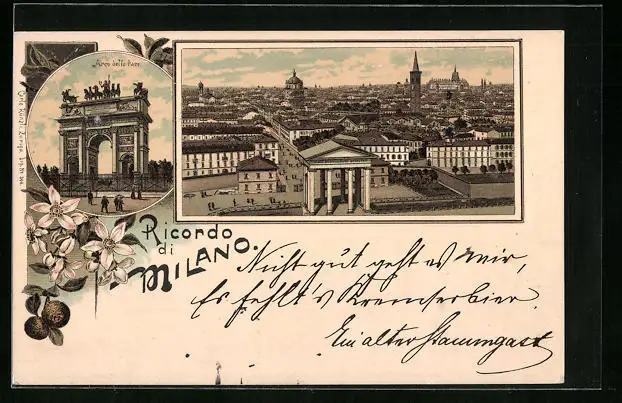 Arco della Pace.
Ricordo
di
MILANO.
Nicht gut geht es mir,
Es fehlt's Kremserbier.
Ein alter Stammgast